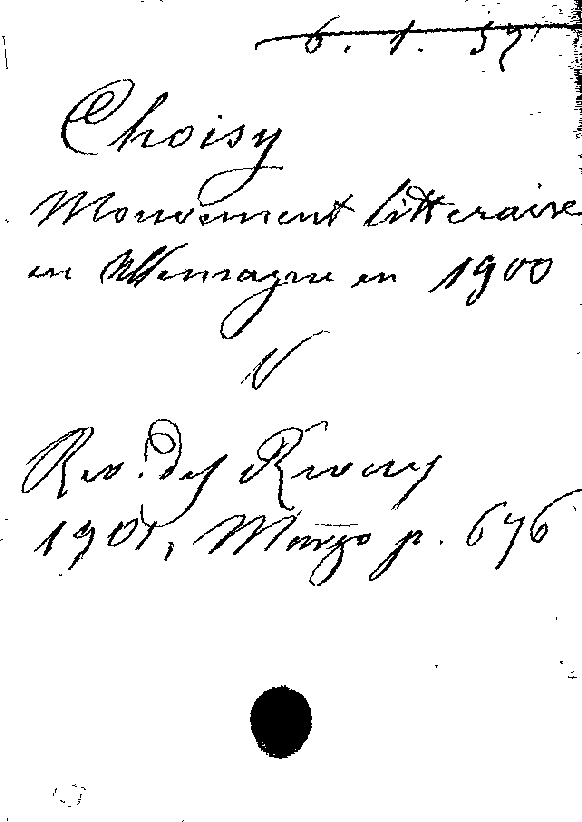 6. 1. 57
Choisy
Mouvement littéraire
en Allemagne en 1900
V
Rev. des Revues
1901, Marzo p. 676